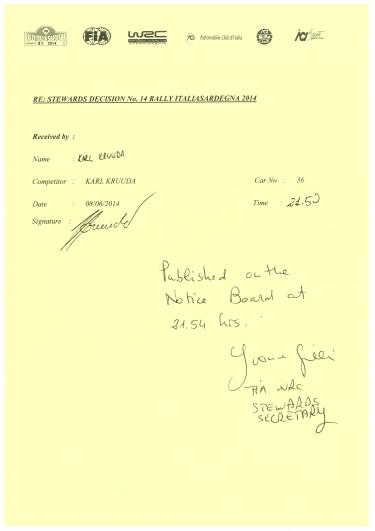 FIA
WRC
Automobile Club d'Italia
RE: STEWARDS DECISION No. 14 RALLY ITALIASARDEGNA 2014
Received by :
Name : KARL KRUUDA
Competitor : KARL KRUUDA Car No : 36
Date : 08/06/2014 Time : 21.50
Signature :
Published on the
Notice Board at
21.54 hrs.
Yvonne
FIA WRC
STEWARDS
SECRETARY